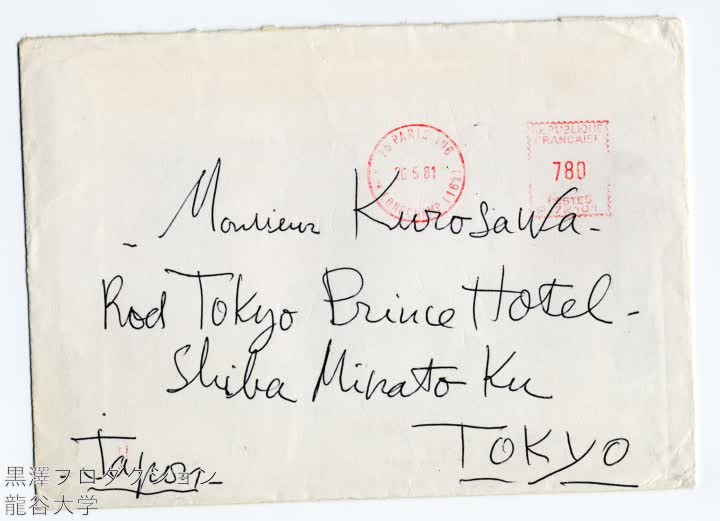 75 PARIS 106
26-5 81
LONGCHAMP (16E)
REPUBLIQUE
FRANCAISE
780
POSTES
Monsieur Kurosawa-
Rod Tokyo Prince Hotel-
Shiba Minato Ku
Japon
TOKYO
黒澤プロダクション
龍谷大学